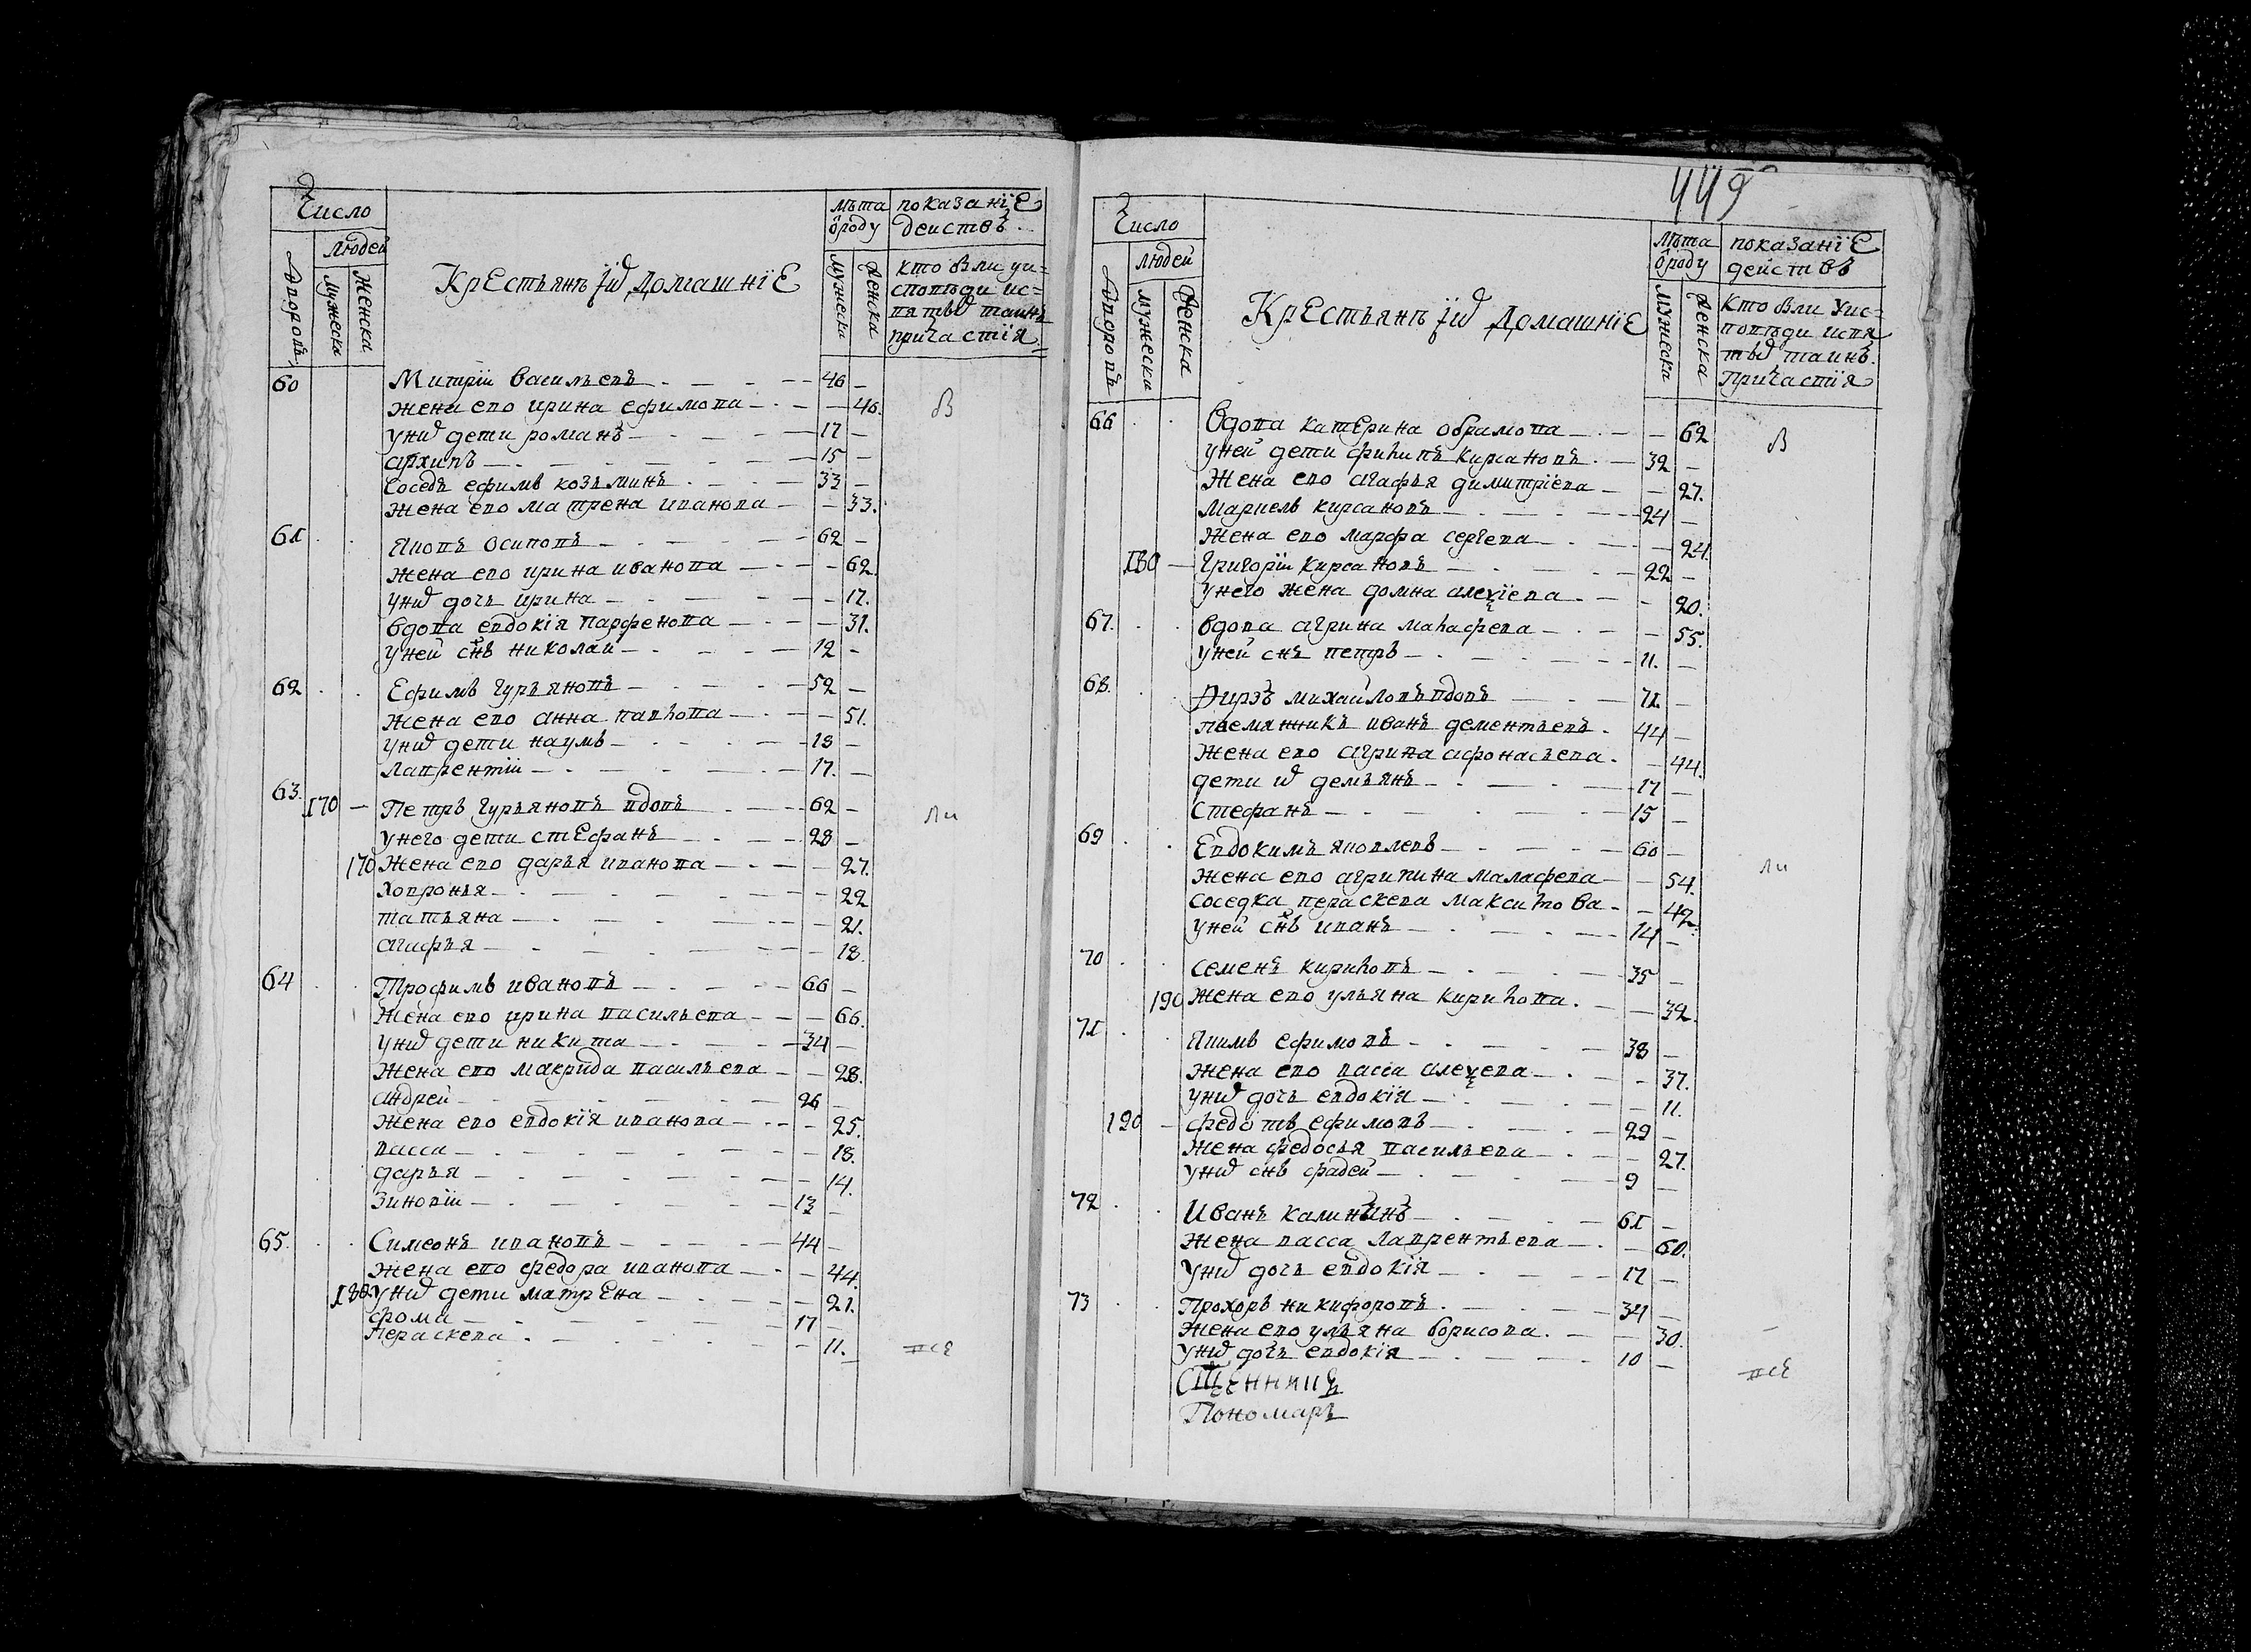 Число
людей
дворовъ
мужеска
женска
Крестьянъ їѿ домашнїе
лѣта
ѿроду
мужеска
женска
показанїе
деиствъ
кто были уи=
споведи ис=
вятыѿ таинъ
причастїя
60 Митрїи Васильевъ 46
жена ево ирина ефимова 46.
униѿ дети романъ 17
архипъ 15
Соседъ ефимъ козьминъ 33
жена ево матрена иванова 33.
В
61 Яковъ Осиповъ 62
жена ево ирина иванова 62.
униѿ дочь ирина 17.
вдова евдокїя парфенова 31.
уней снъ николаи 12
62 Ефимъ гурьяновъ 52
жена ево анна павлова 51.
униѿ дети наумъ 18
лаврентїи 17.
63. 170 Петръ гурьяновъ вдовъ 62
унего дети стЕфанъ 28
170 Жена ево дарья иванова 27.
Ховронья 22
татьяна 21.
агафья 18.
ли
64 Трофимъ ивановъ 66
Жена ево ирина васильева 66.
униѿ дети никита 34
Жена ево макрида васильева 28.
андреи 26
Жена ево евдокїя иванова 25.
васса 18.
дарья 14.
Зиновїи 13
65. Симеонъ ивановъ 44
Жена ево федора иванова 44.
180 униѿ дети матрЕна 21.
фома 17
Пераскева 11.
все
449
Число
людей
дворовъ
мужески
женска
Крестьянъ їѿ домашнїе
лѣта
ѿроду
мужеска
женска
показанїе
деиствъ
кто были уис=
поведи исвя
тыѿ таинъ
Причастїя
66 Вдова катЕрина обрамова 62
уней дети филипъ кирсановъ 32
Жена ево агафья димитрїева 27.
Маркелъ кирсановъ 24
Жена ево марфа сергева 24.
180 Григорїи кирсановъ 22
унего жена домна алеѯїева 20.
В
67. вдова агрина малафева 55.
уней снъ петръ 11.
68. михаиловъ вдовъ 71.
племянникъ иванъ дементьевъ 44
Жена ево агрипа афонасьева 44.
дети ѿ демьянъ 17
Стефанъ 15
69 Евдокимъ яковлевъ 60
Жена ево агрипина малафева 54.
соседка пераскева максимова 42.
уней снъ иванъ 14
ли
70 семенъ кириловъ 35
190 Жена ево ульяна кирилова 32.
71 Якимъ ефимовъ 38
Жена ево васса алеѯева 37.
униѿ дочь евдокїя 11.
190 федотъ ефимовъ 29
Жена федосья васильева 27.
униѿ снъ фадей 9
72 Иванъ калининъ 61
Жена васса лаврентьева 60.
униѿ дочь евдокїя 17
73 Прохоръ никифоровъ 34
Жена ево ульяна борисова 30.
униѿ дочь евдокїя 10
все
Пономарь